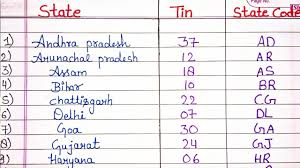 Page No.
State Tin State Code
1) Andhra pradesh 37 AD
2) Arunachal pradesh 12 AR
3) Assam 18 AS
4) Bihar 10 BR
5) chattisgarh 22 CG
6) Delhi 07 DL
7) Goa 30 GA
8) Gujarat 24 GJ
9) Haryana 06 HR